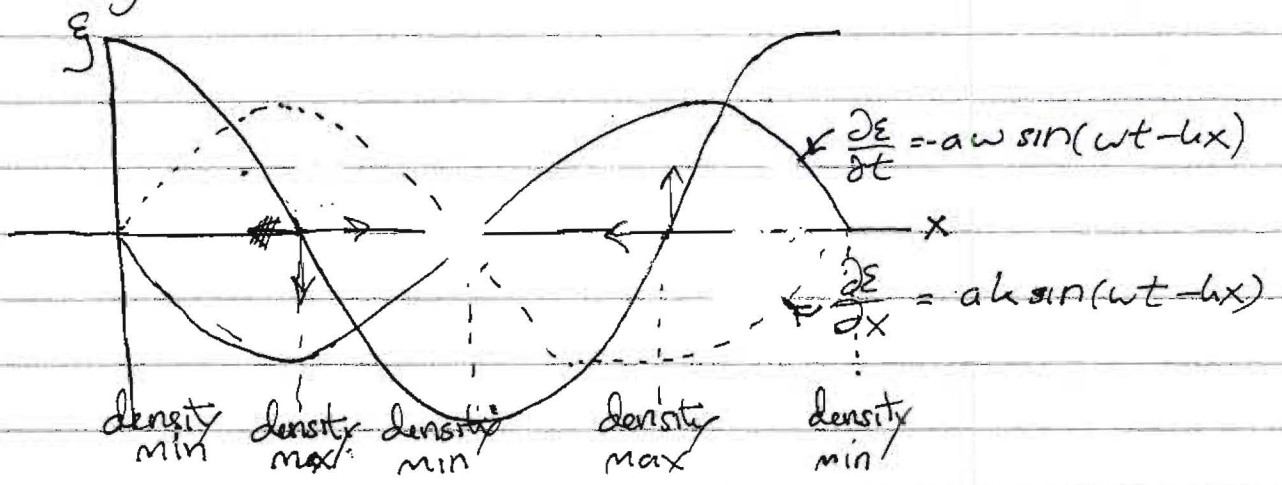 ξ
∂ε/∂t = -aω sin(ωt-kx)
x
∂ε/∂x = ak sin(ωt-kx)
density min
density max
density min
density max
density min